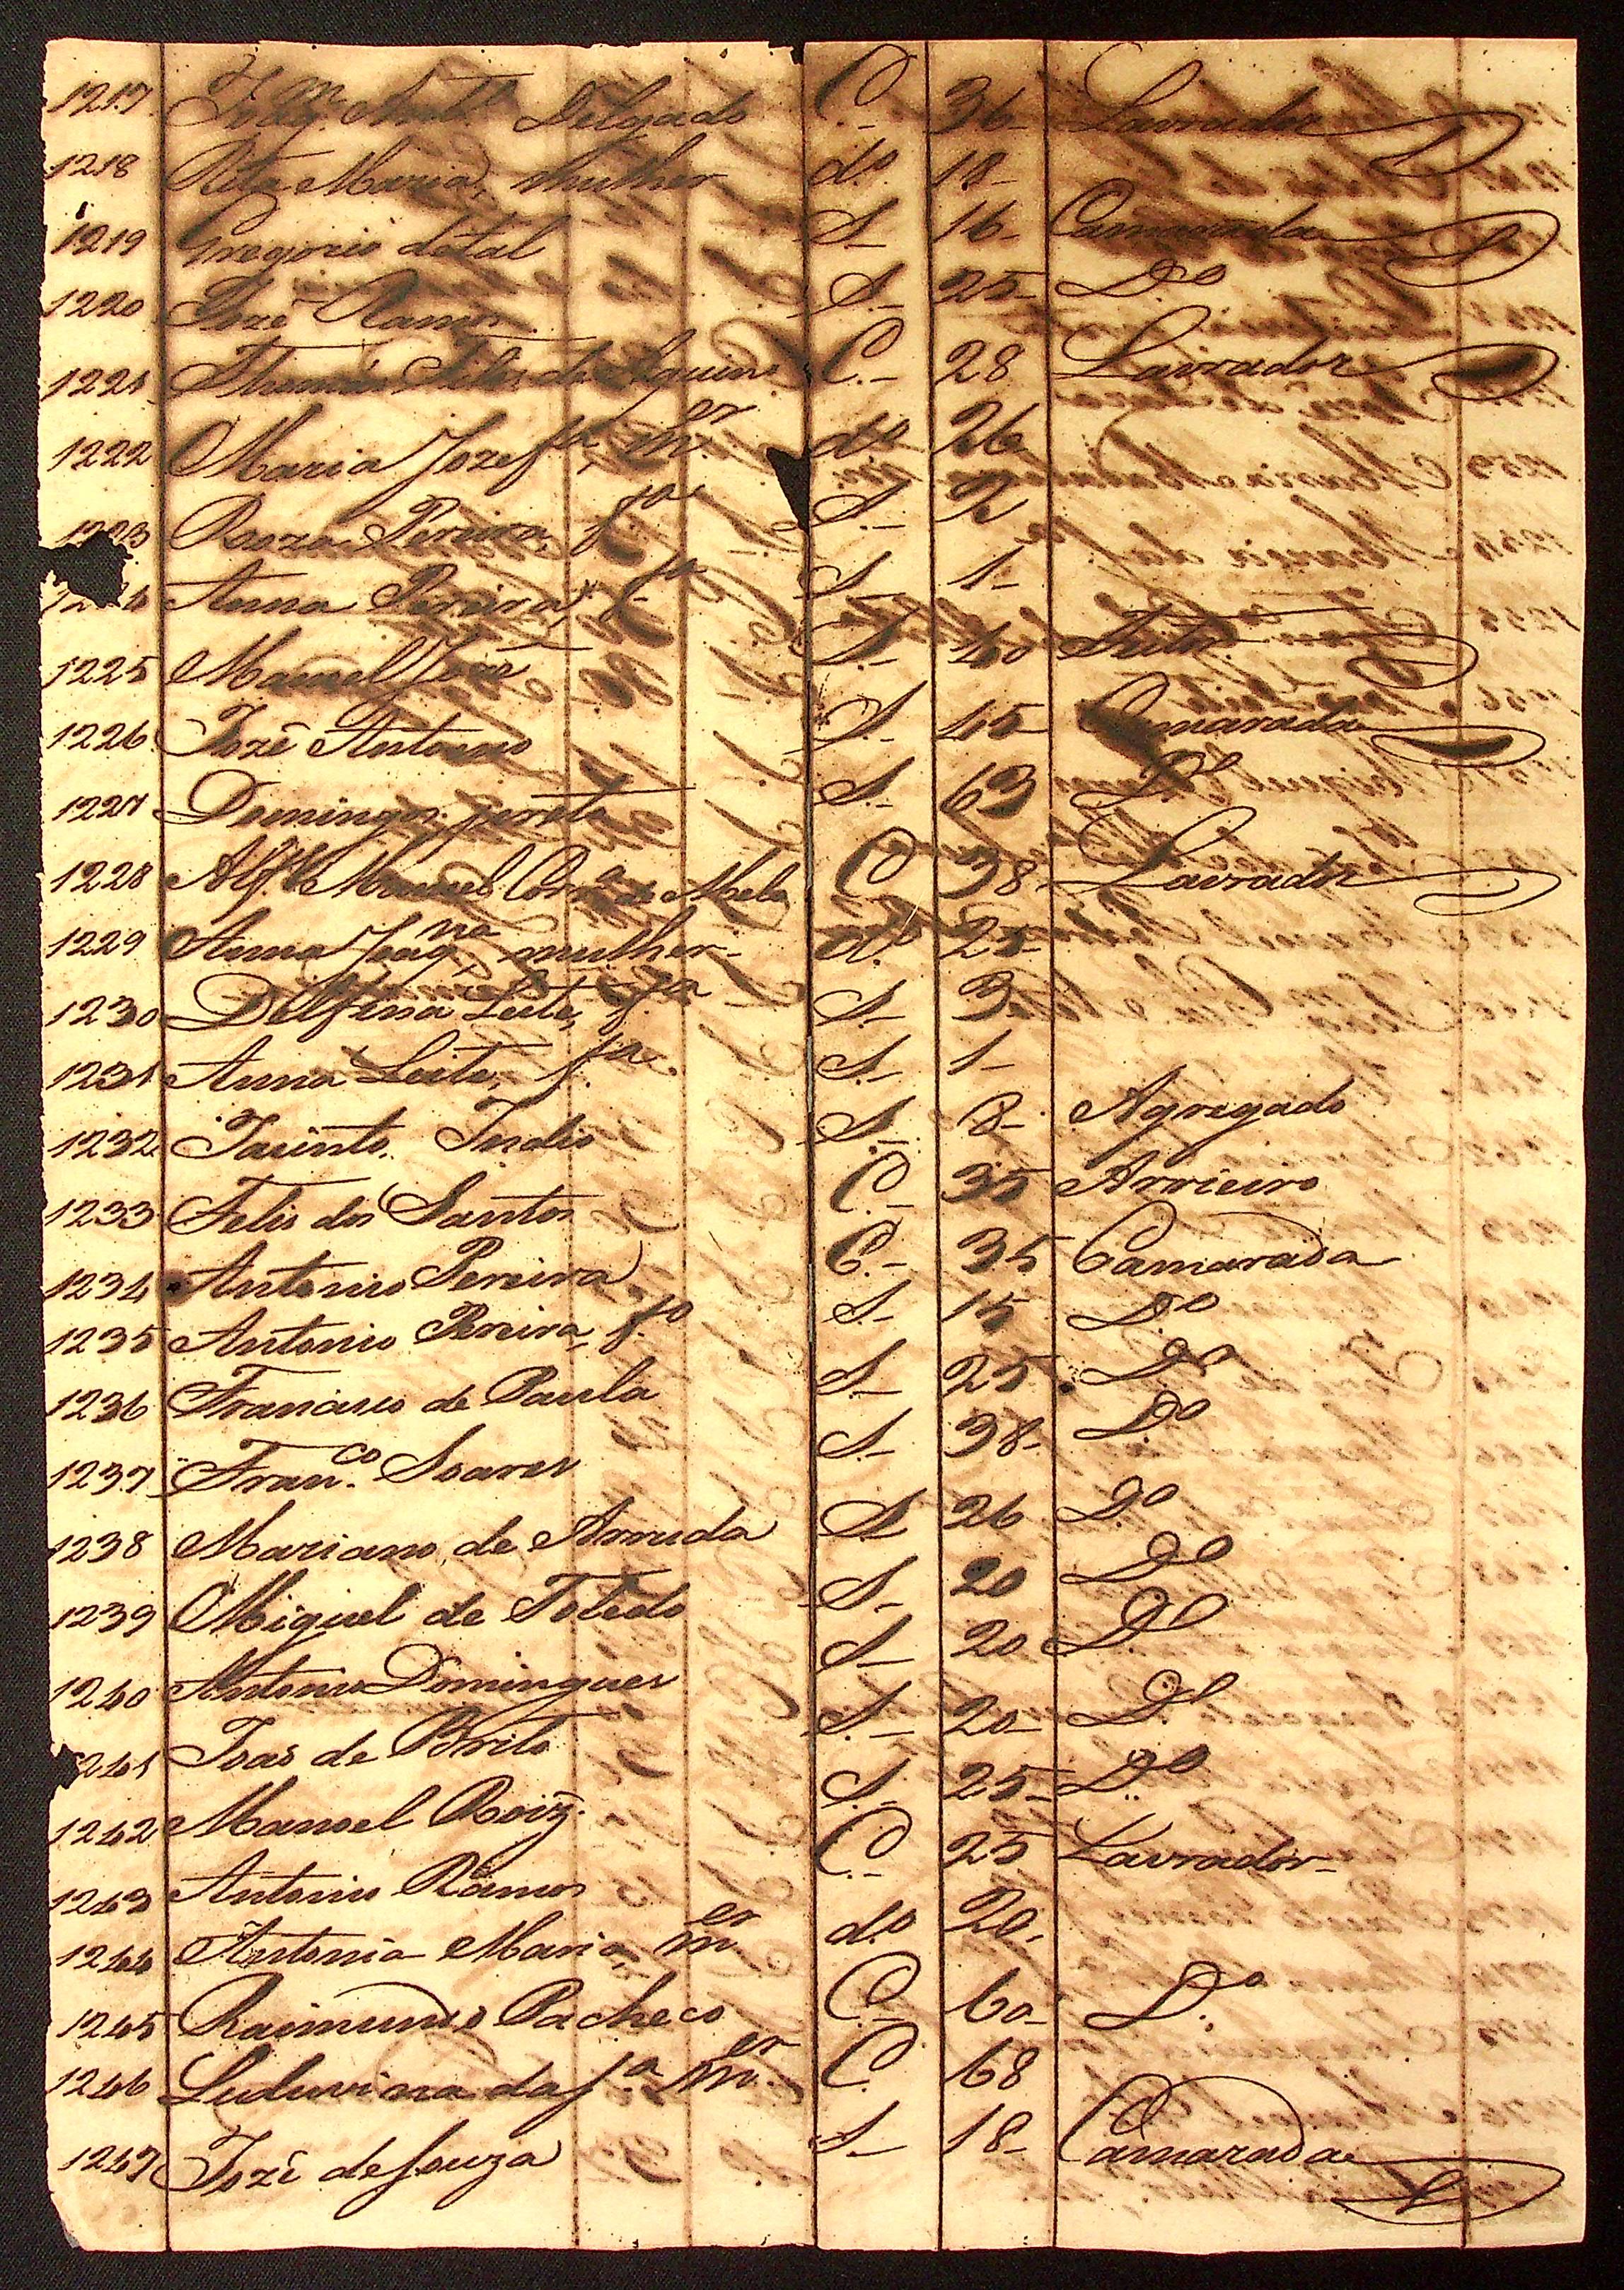 1217 Joaq.m Ant.o Delgado C. 36 Lavrador
1218 Rita Maria, mulher d.o 18
1219 Gregorio de tal S. 16 Camarada
1220 Jozé Ramos S. 25 D.o
1221 Thomás de C. 28 Lavrador
1222 Maria Jozefa, m.er d.o 26
1223 Roza Pereira, f.a S. 2
Anna Pereira, f.a S. 1
1225 Manoel José S. 40 Feitor
1226 Jozé Antonio S. 45 Camarada
1227 Domingos preto S. 63 D.o
1228 Alf.s Manoel Corr.a de Mello C. 38 Lavrador
1229 Anna Joaq.na, mulher d.o 25
1230 Delfina Leite, f.a S. 3
1231 Anna Leite, f.a S. 1
1232 Jacinto. Indio S. 8 Agregado
1233 Felis dos Santos C. 35 Arrieiro
1234 Antonio Pereira C. 35 Camarada
1235 Antonio Pereira, f.o S. 15 D.o
1236 Francisco de Paula S. 25 D.o
1237 Fran.co Soares S. 38 D.o
1238 Mariano de Arruda S. 26 D.o
1239 Miguel de Toledo S. 20 D.o
1240 Antonio Domingues S. 20 D.o
1241 Joao de Brito S. 20 D.o
1242 Manoel Roiz. S. 25 D.o
1243 Antonio Ramos C. 25 Lavrador
1244 Antonia Maria, m.er d.o 20
1245 Raimundo Pacheco C. 60 D.o
1246 Luduvina da S.a m.er C. 68
1247 Jozé de Souza S. 18 Camarada